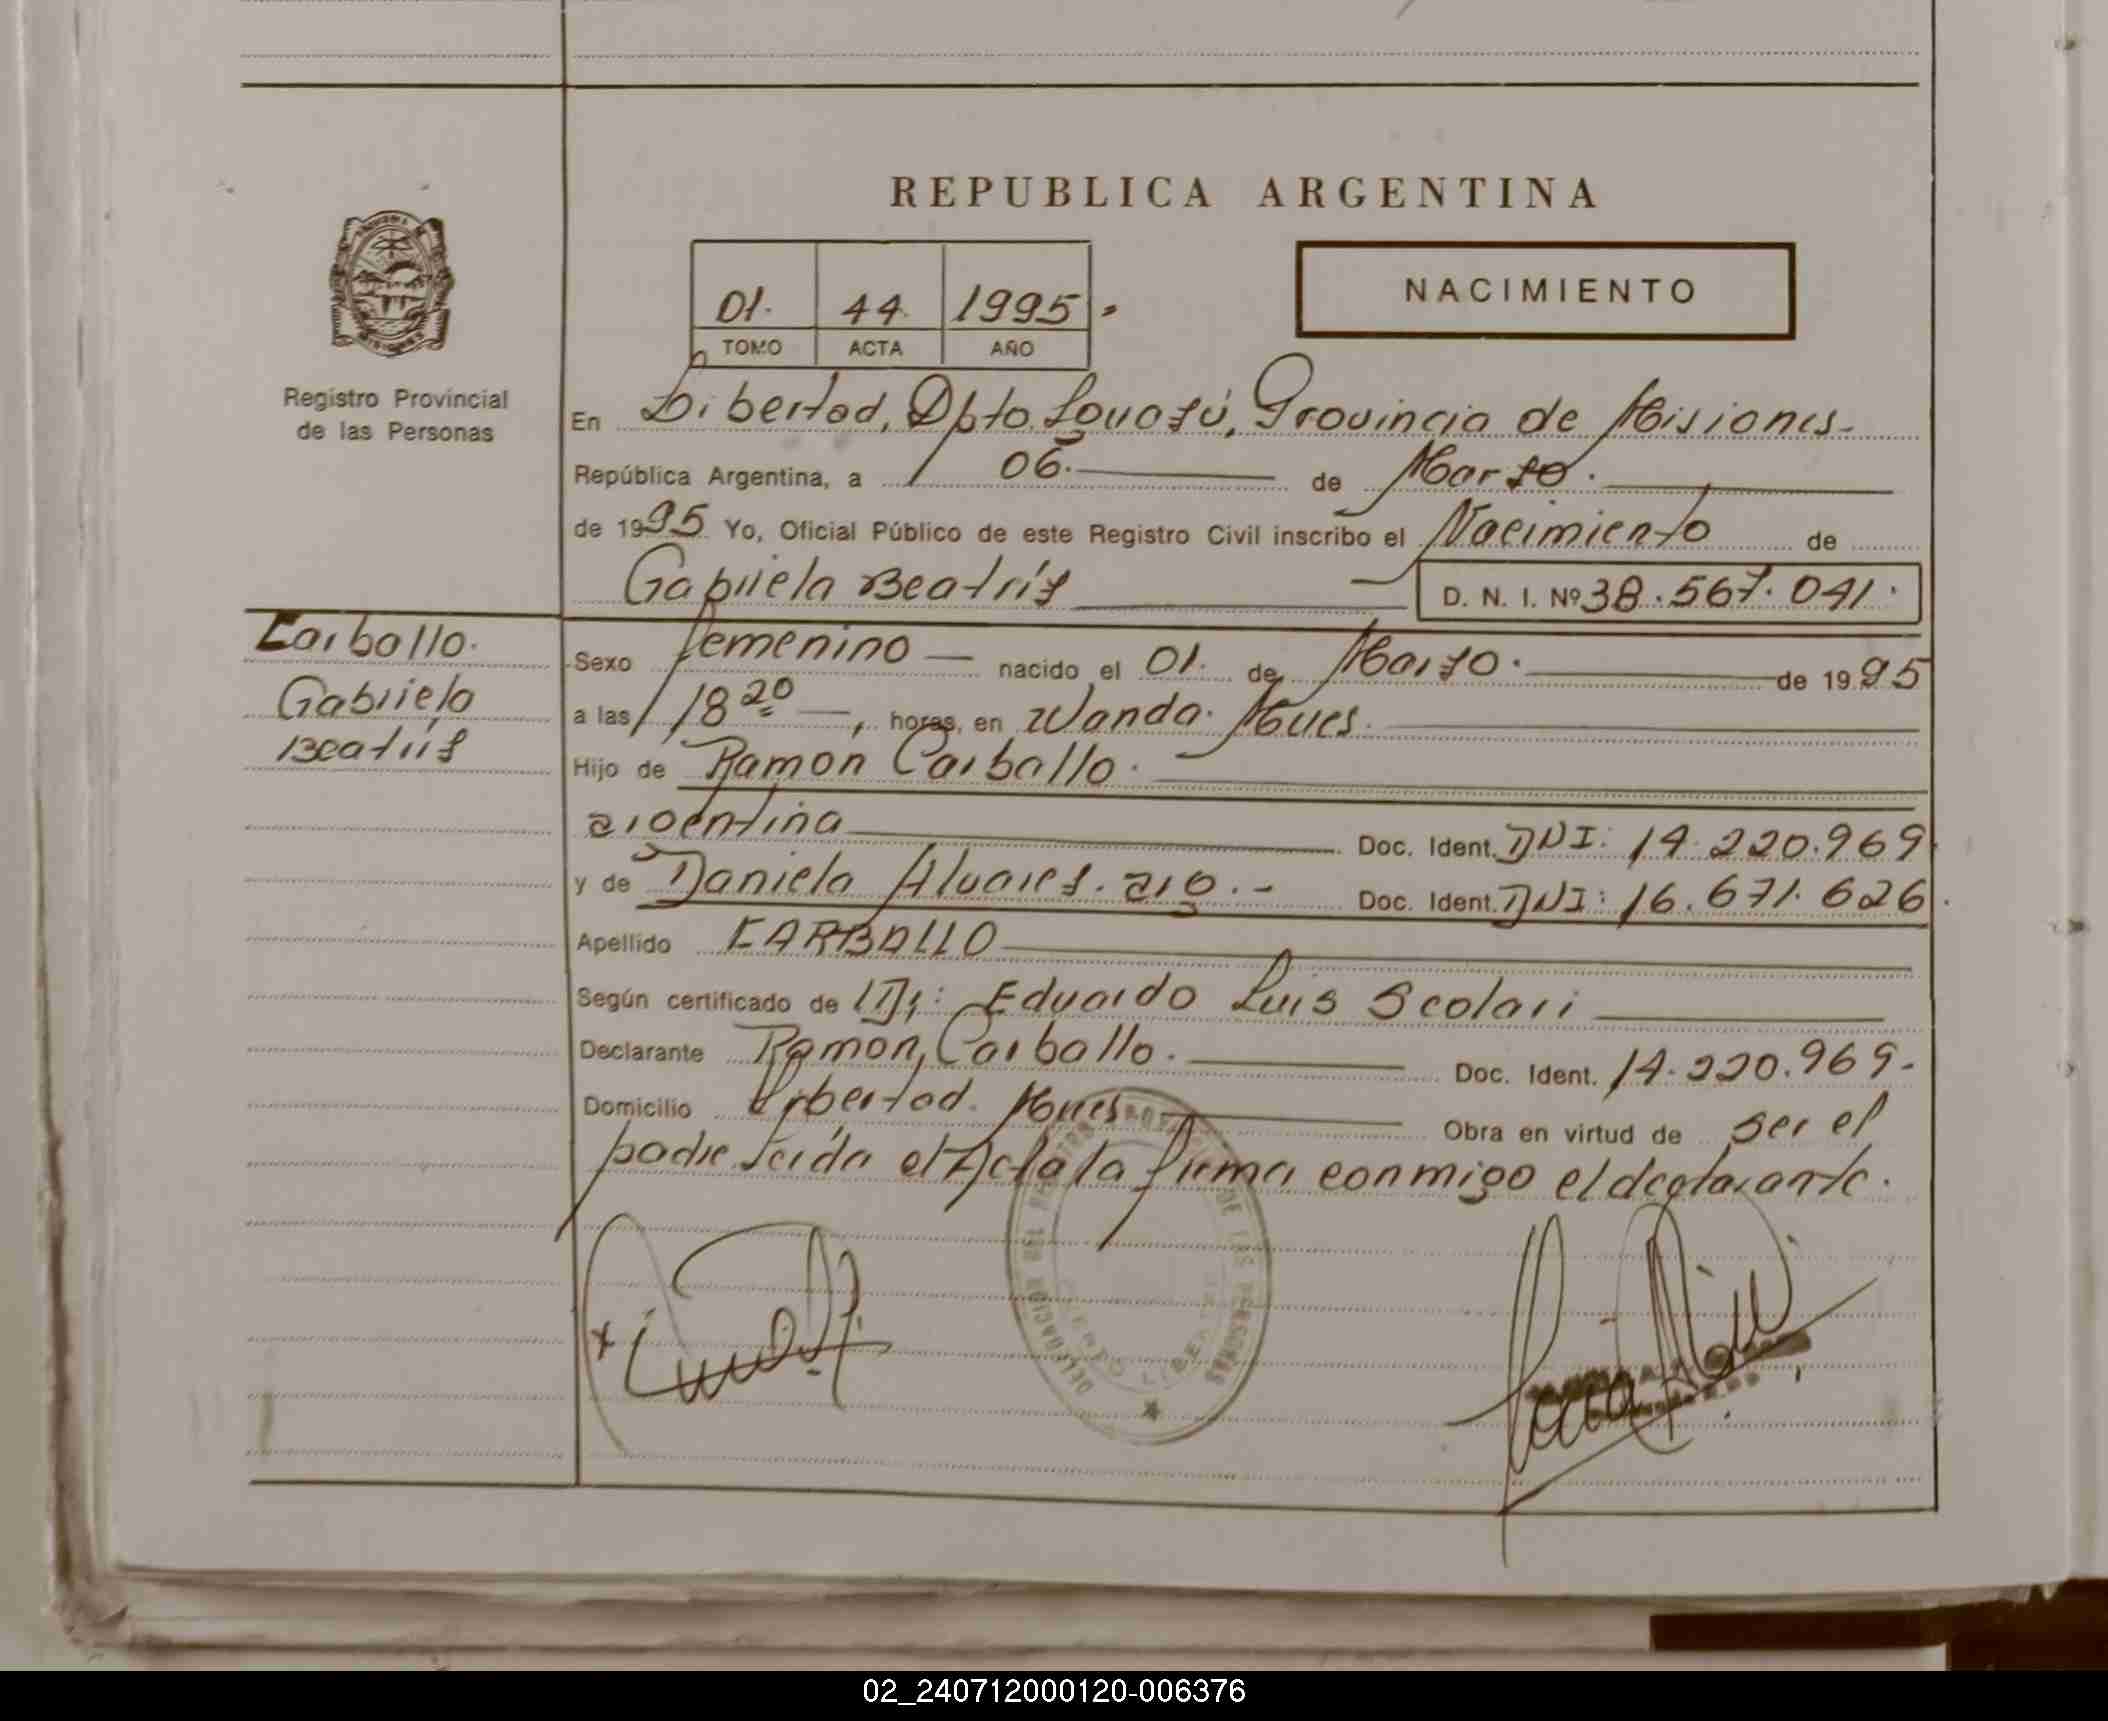 REPUBLICA ARGENTINA
01. 44. 1995.
TOMO ACTA AÑO
NACIMIENTO
Registro Provincial
de las Personas
En Libertad, Dpto. Iguazú, Provincia de Misiones.
República Argentina, a 06. de Marzo.
de 1995 Yo, Oficial Público de este Registro Civil inscribo el Nacimiento de
Gabriela Beatríz D. N. I. Nº 38.567.041.
Carballo.
Gabriela
Beatríz
Sexo femenino nacido el 01. de Marzo. de 1995
a las 18 20, horas, en Wanda. Mnes.
Hijo de Ramon Carballo.
argentina Doc. Ident. DNI: 14.220.969
y de Daniela Alvarez. arg. - Doc. Ident. DNI: 16.671.626.
Apellido CARBALLO
Según certificado de Dr: Eduardo Luis Scolari
Declarante Ramon Carballo. Doc. Ident. 14.220.969.
Domicilio Libertad. Mnes Obra en virtud de ser el
padre Leída el Acta la firma conmigo el declarante.
DELEGACION DEL REGISTRO PROVINCIAL DE LAS PERSONAS
02_240712000120-006376